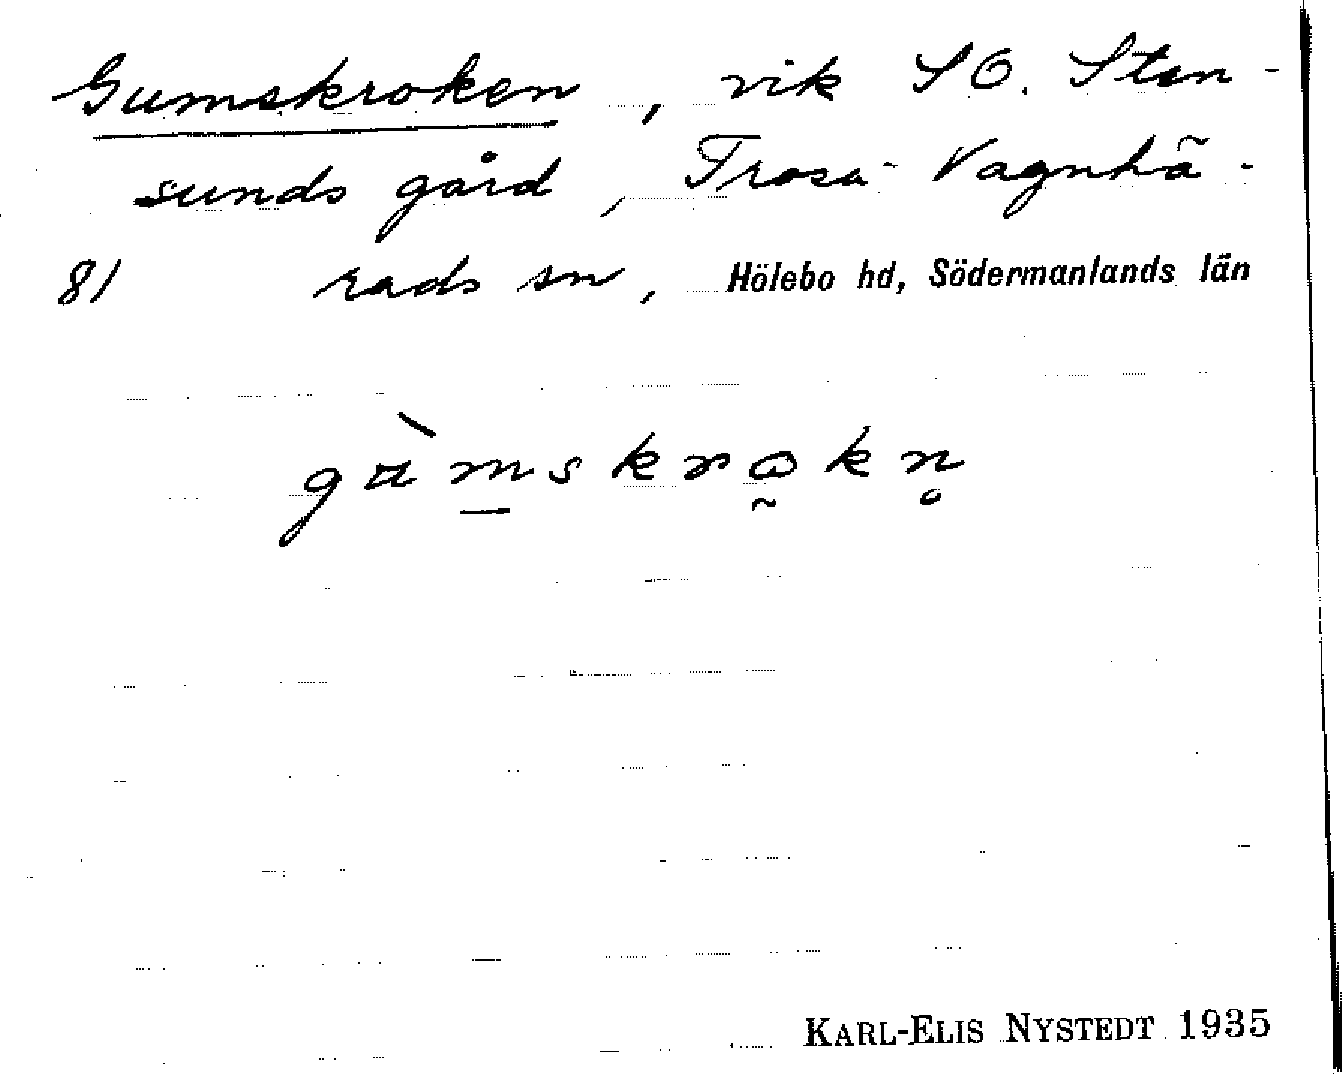 Gumskroken, vik SO. Sten-
sunds gård, Trosa-Vagnhä-
81 rads sn, Hölebo hd, Södermanlands län
gu̇̀mskrǫkn̥
KARL-ELIS NYSTEDT 1935